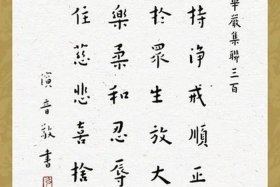 華嚴集聯三百
持淨戒順正
於眾生放大
樂柔和忍辱
住慈悲喜捨
演音敬書